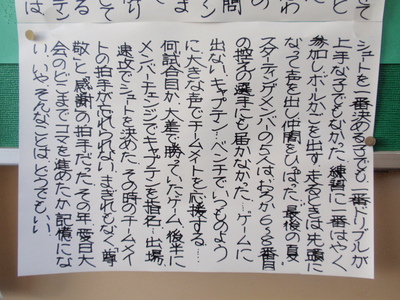 シュートを一番決める子でも一番ドリブルが
上手な子でもなかった。練習に一番はやく
参加しボールかごを出す。走るときは先頭に
なって声を出し仲間をひっぱった。最後の夏
スターティングメンバーの5人はおろか6〜8番目
の控えの選手にも届かなかった…ゲームに
出ないキャプテン…ベンチでいつものよう
に大きな声でチームメイトを応援する…
何試合目か、大差で勝っていたゲーム後半に
メンバーチェンジでキャプテンを指名…出場。
速攻でシュートを決めた。その時のチームメイ
トの拍手が忘れられない。まぎれもなく「尊
敬」と「感謝」の拍手だった。その年、愛日大
会のどこまでコマを進めたか記憶にな
い。いやそんなことは、どうでもいい。